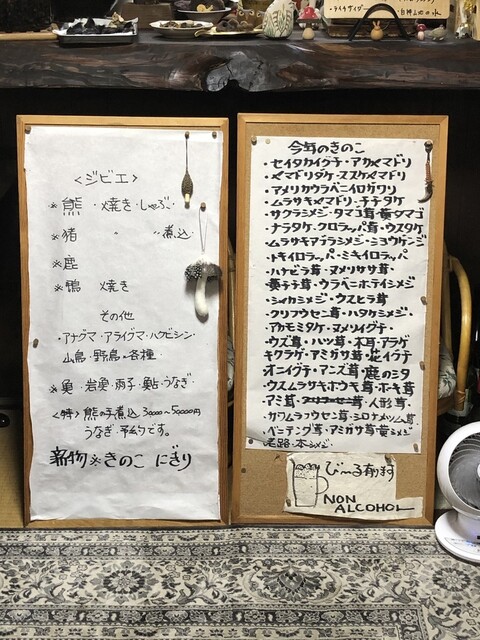 ・テイクサイダー
・白神山地の水
<ジビエ>
※熊 ・焼き・しゃぶ
※猪 〃 〃 煮込
※鹿
※鴨 焼き
その他
・アナグマ・アライグマ・ハクビシン・
山鳥・野鳥・各種
※亀・岩魚・雨子・鮎・うなぎ・
<特>熊の手煮込 30000〜50000円
うなぎ・予約です。
名物※きのこ にぎり
今年のきのこ
・セイタカイグチ・アカヤマドリ
・ヤマドリタケ・ススケヤマドリ
・アメリカウラベニイロガワリ
・ムラサキヤマドリ・チチタケ
・サクラシメジ・タマゴ茸・黄タマゴ
・ナラタケ・クロラッパ茸・ウスタケ
・ムラサキアブラシメジ・ショウゲンジ
・トキイロラッパ・ミキイロラッパ
・ハナビラ茸・ヌメリササ茸・
・栗チチ茸・ウラベニホテイシメジ
・シャカシメジ・ウスヒラ茸
・クリフウセン茸・ハタケシメジ・
・アカモミタケ・ヌメリイグチ・
・ウズ茸・ハツ茸・木耳・アラゲ
キクラゲ・アミガサ茸・花イグチ
・オニイグチ・アンズ茸・鹿のシタ
・ウスムラサキホウキ茸・ホーキ茸
・アミ茸・人形茸・
・カワムラフウセン茸・シロナメツムタケ
・ベニテング茸・アミガサ茸・黄シメジ
・老路・本シメジ・
び〜る有ます
NON
ALCOHOL